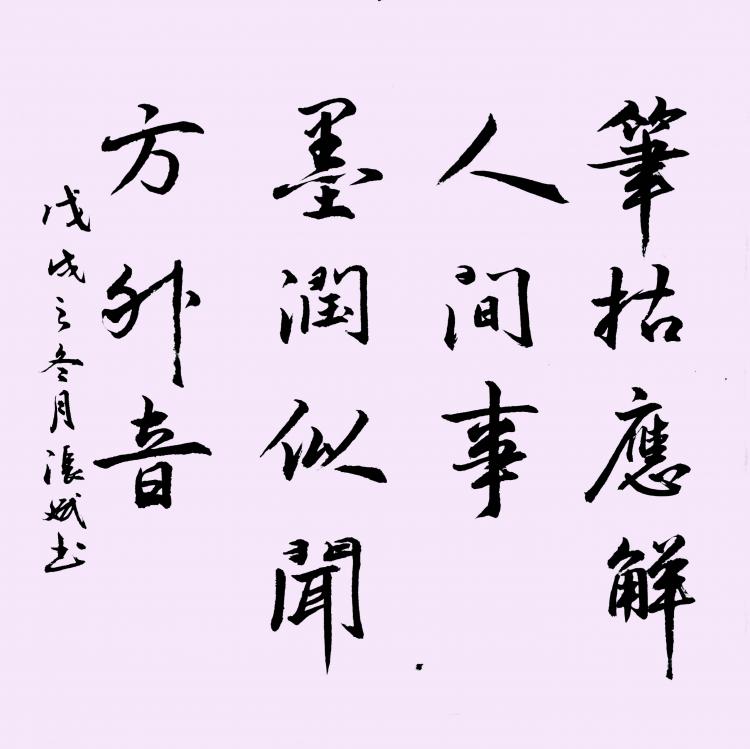 筆枯應解
人間事
墨潤似聞
方外音
戊戌之冬月張斌书